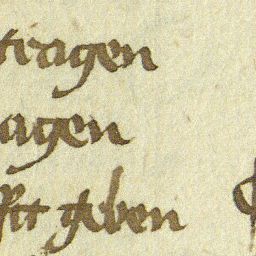 tragen
agen
fft geben